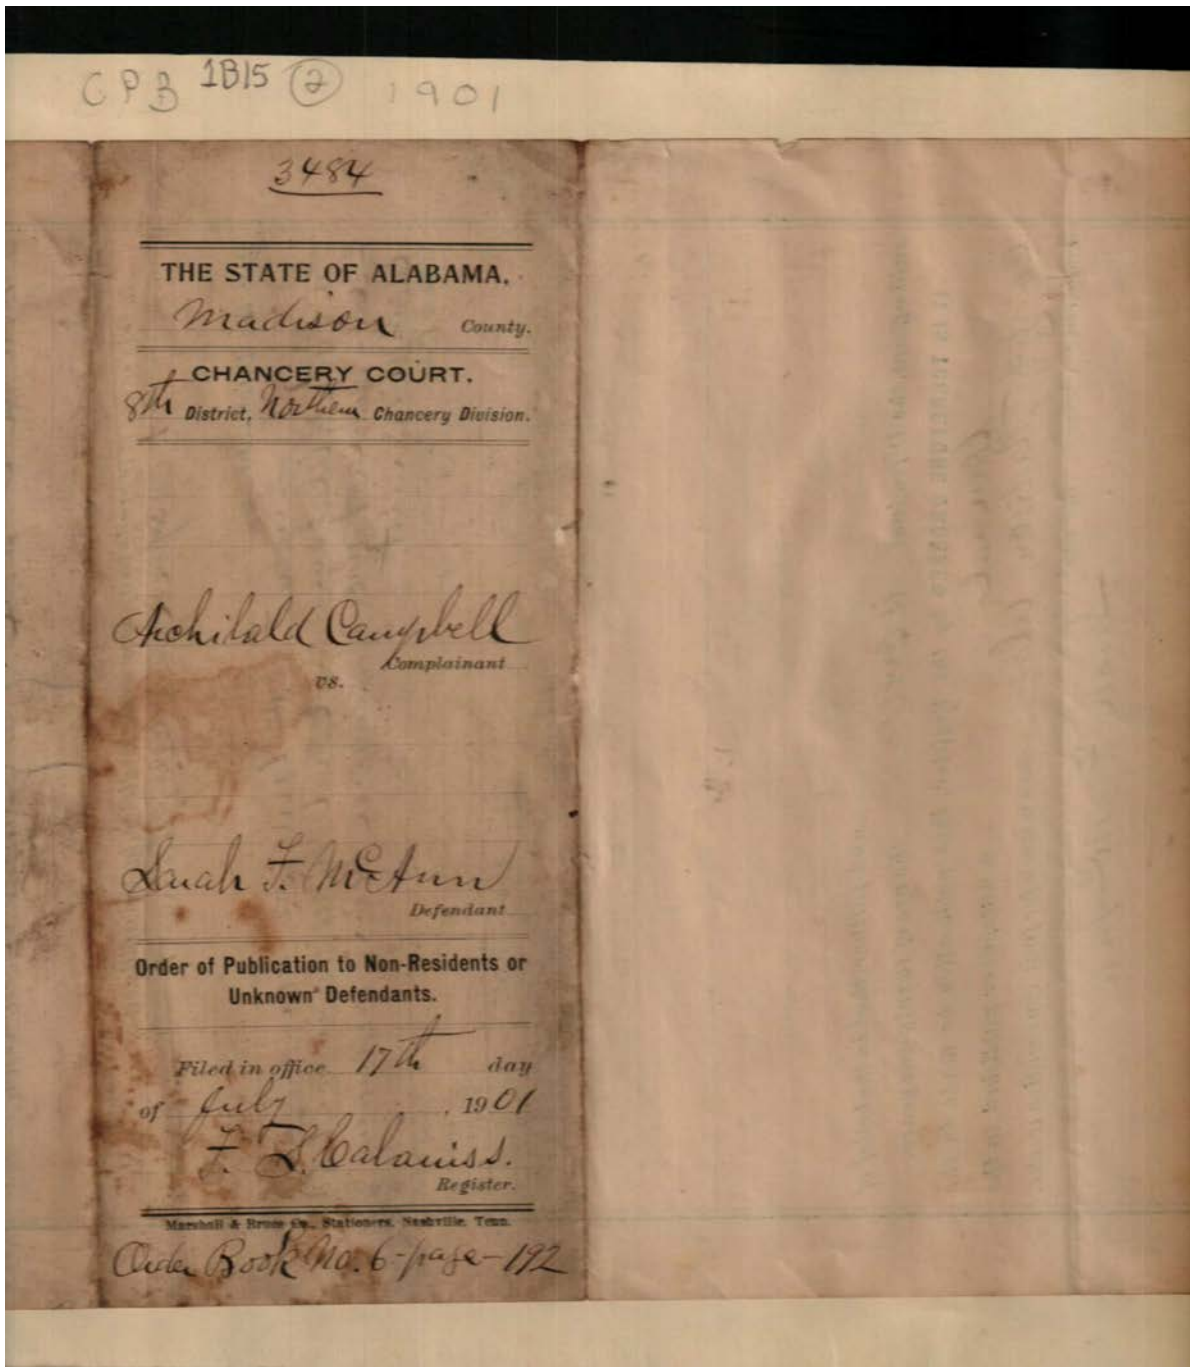 CPB 1B15 2 1901
3484
THE STATE OF ALABAMA.
Madison County.
CHANCERY COURT.
8th District, Northern Chancery Division.
Archibald Campbell
Complainant
vs.
Sarah F. McAnn
Defendant
Order of Publication to Non-Residents or
Unknown Defendants.
Filed in office 17th day
of July 1901
F. S. Calaniss.
Register.
Marshall & Bruce Co., Stationers, Nashville, Tenn.
Order Book No. 6-page-192